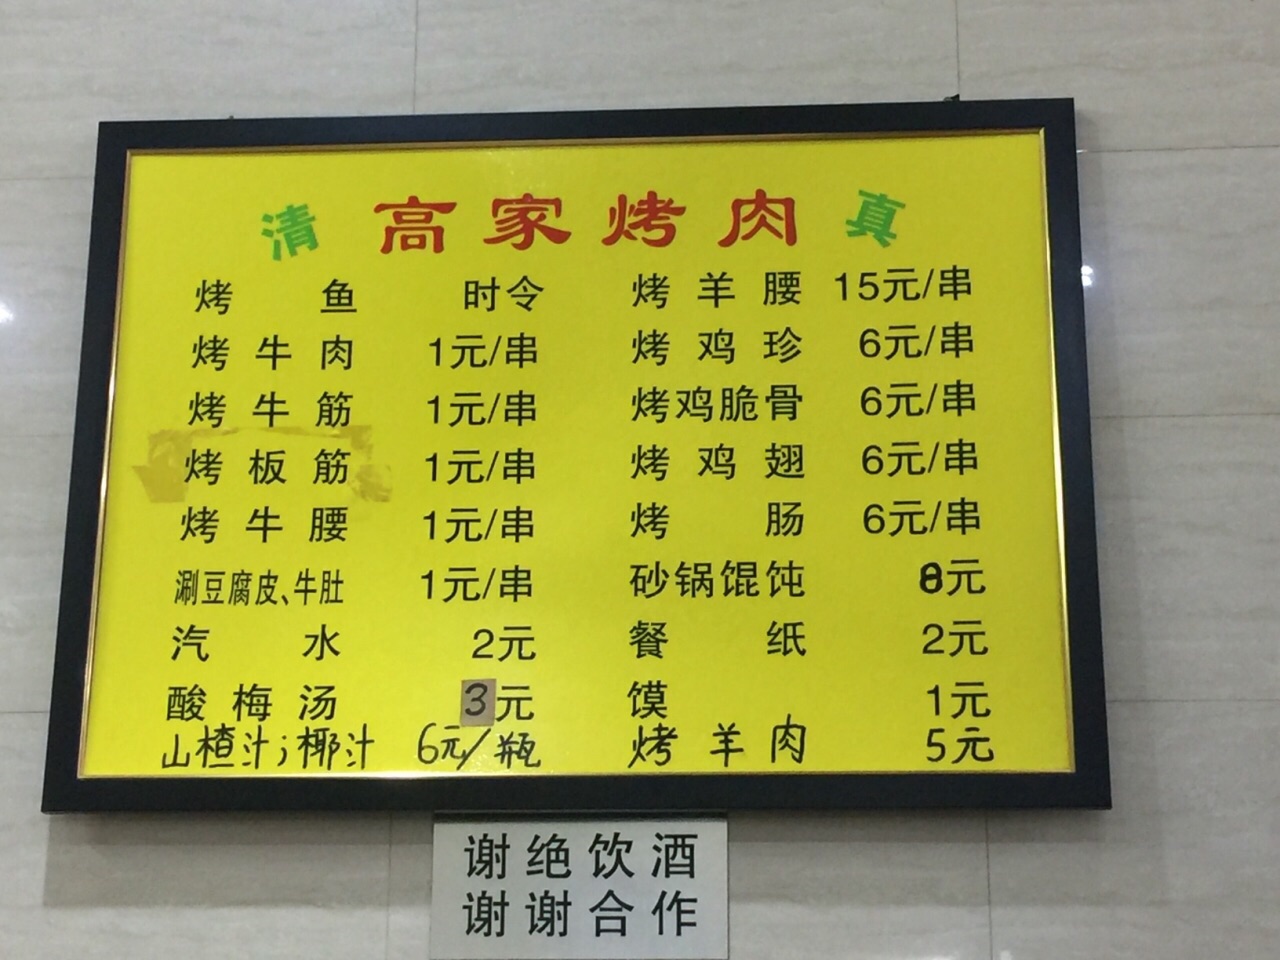 清 高家烤肉 真
烤鱼 时令
烤牛肉 1元/串
烤牛筋 1元/串
烤板筋 1元/串
烤牛腰 1元/串
涮豆腐皮、牛肚 1元/串
汽水 2元
酸梅汤 3元
山楂汁;椰汁 6元/瓶
烤羊腰 15元/串
烤鸡珍 6元/串
烤鸡脆骨 6元/串
烤鸡翅 6元/串
烤肠 6元/串
砂锅馄饨 8元
餐纸 2元
馍 1元
烤羊肉 5元
谢绝饮酒
谢谢合作